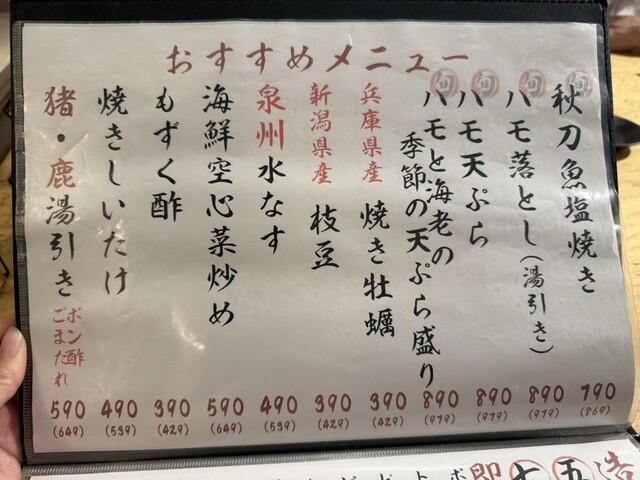 おすすめメニュー
旬
秋刀魚塩焼き
790
(869)
旬
ハモ落とし(湯引き)
890
(979)
旬
ハモ天ぷら
890
(979)
旬
ハモと海老の
季節の天ぷら盛り
890
(979)
兵庫県産 焼き牡蠣
390
(429)
新潟県産 枝豆
390
(429)
泉州水なす
490
(539)
海鮮空心菜炒め
590
(649)
もずく酢
390
(429)
焼きしいたけ
490
(539)
猪・鹿湯引き
ポン酢
ごまだれ
590
(649)
造
五
七
即